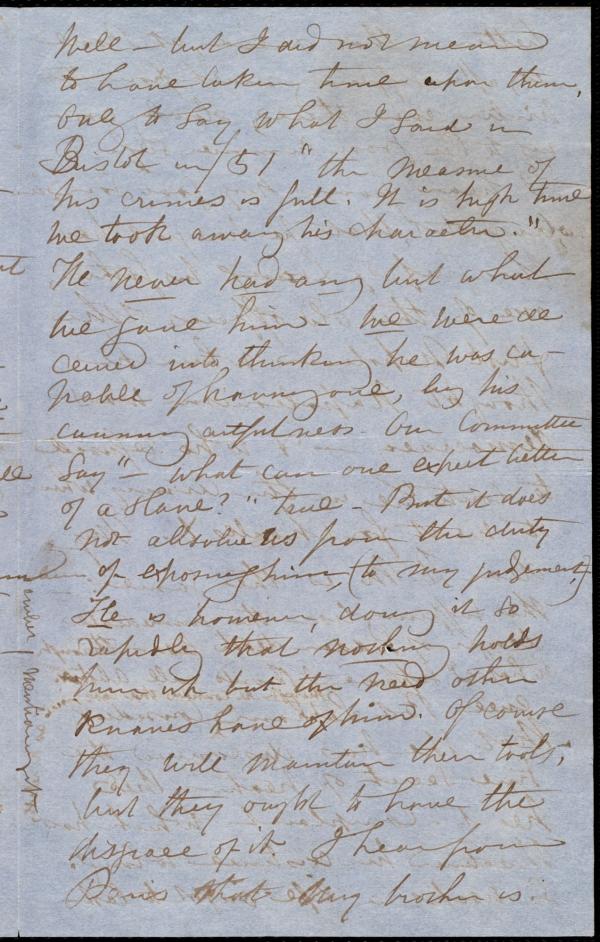 Well – but I did not mean
to have taken time upon them,
only to say what I said in
Bristol in /51 "the measure of
his crimes is full. It is high time
we took away his character."
He never had any but what
we gave him – we were de
ceived into thinking he was ca-
pable of having one, by his
cunning artfulness. Our Committee
say "– what can one expect better
of a slave?" true – But it does
not absolve us from the duty
of exposing him, (to my judgement)
He is however, doing it so
rapidly that nothing holds
him up but the need other
knaves have of him. Of course
they will maintain their tools,
but they ought to have the
disgrace of it. I hear from
Paris that my brother is